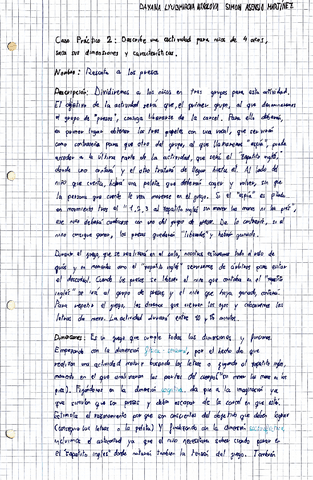 DAYANA LYUDMILOVA NIKOLOVA SIMON ASENSIO MARTINEZ
Caso Práctico 2: Describe una actividad para niños de 4 años,
saca sus dimensiones y características.
Nombre: Rescate a los presos
Descripción: Dividiremos a los niños en tres grupos para esta actividad.
El objetivo de la actividad será que, el primer grupo, al que denominamos
el grupo de "presos", consiga liberarse de la cárcel. Para ello deberá,
en primer lugar obtener los tres papeles con una vocal, que servirá
como contraseña para que otro del grupo, al que llamaremos "espía", pueda
acceder a la última parte de la actividad, que será el "zapatito inglés",
donde uno contará y el otro tratará de llegar hasta él. Al lado del
niño que cuenta, habrá una pelota que deberán coger y volver, sin que
la persona que cuenta le vea moverse en el juego. Si el "espía" es pillado
en movimiento tras el "1, 2, 3 al zapatito inglés sin mover las manos ni los pies",
ese niño deberá cambiarse con uno del grupo de presos. De lo contrario, si el
niño consigue ganar, los presos quedarán "liberados" y habrán ganado.
Durante el juego, que se realizará en el aula, nosotros estaremos todo el rato de
guía y en momentos como el "zapatito inglés" seremos de árbitros para evitar
el
Cuando los presos se liberen el niño que contaba en el "zapatito
inglés" se irá al grupo de presos y el niño que haya ganado contará.
Para
el juego, les diremos que cierren los ojos y
las
letras de nuevo. La actividad durará entre 10 y 15 minutos.
Dimensiones: Es un juego que cumple todas las dimensiones y funciones.
Empezando con la dimensión física-motora, por el hecho de que
realizan una actividad motora buscando las letras o jugando al zapatito inglés,
momento en el que
las partes del cuerpo ("sin mover las manos ni los
pies).
en la dimensión cognitiva, ya que a la imaginación ya
que
que son presos y debe escapar de la cárcel en que está.
Estimula el razonamiento porque son conscientes del objetivo que deben lograr
(conseguir las letras o la pelota) Y finalizando con la dimensión
incluimos el
ya que el niño necesitará estar
para en
el "zapatito inglés" donde notará también la tensión del juego. También